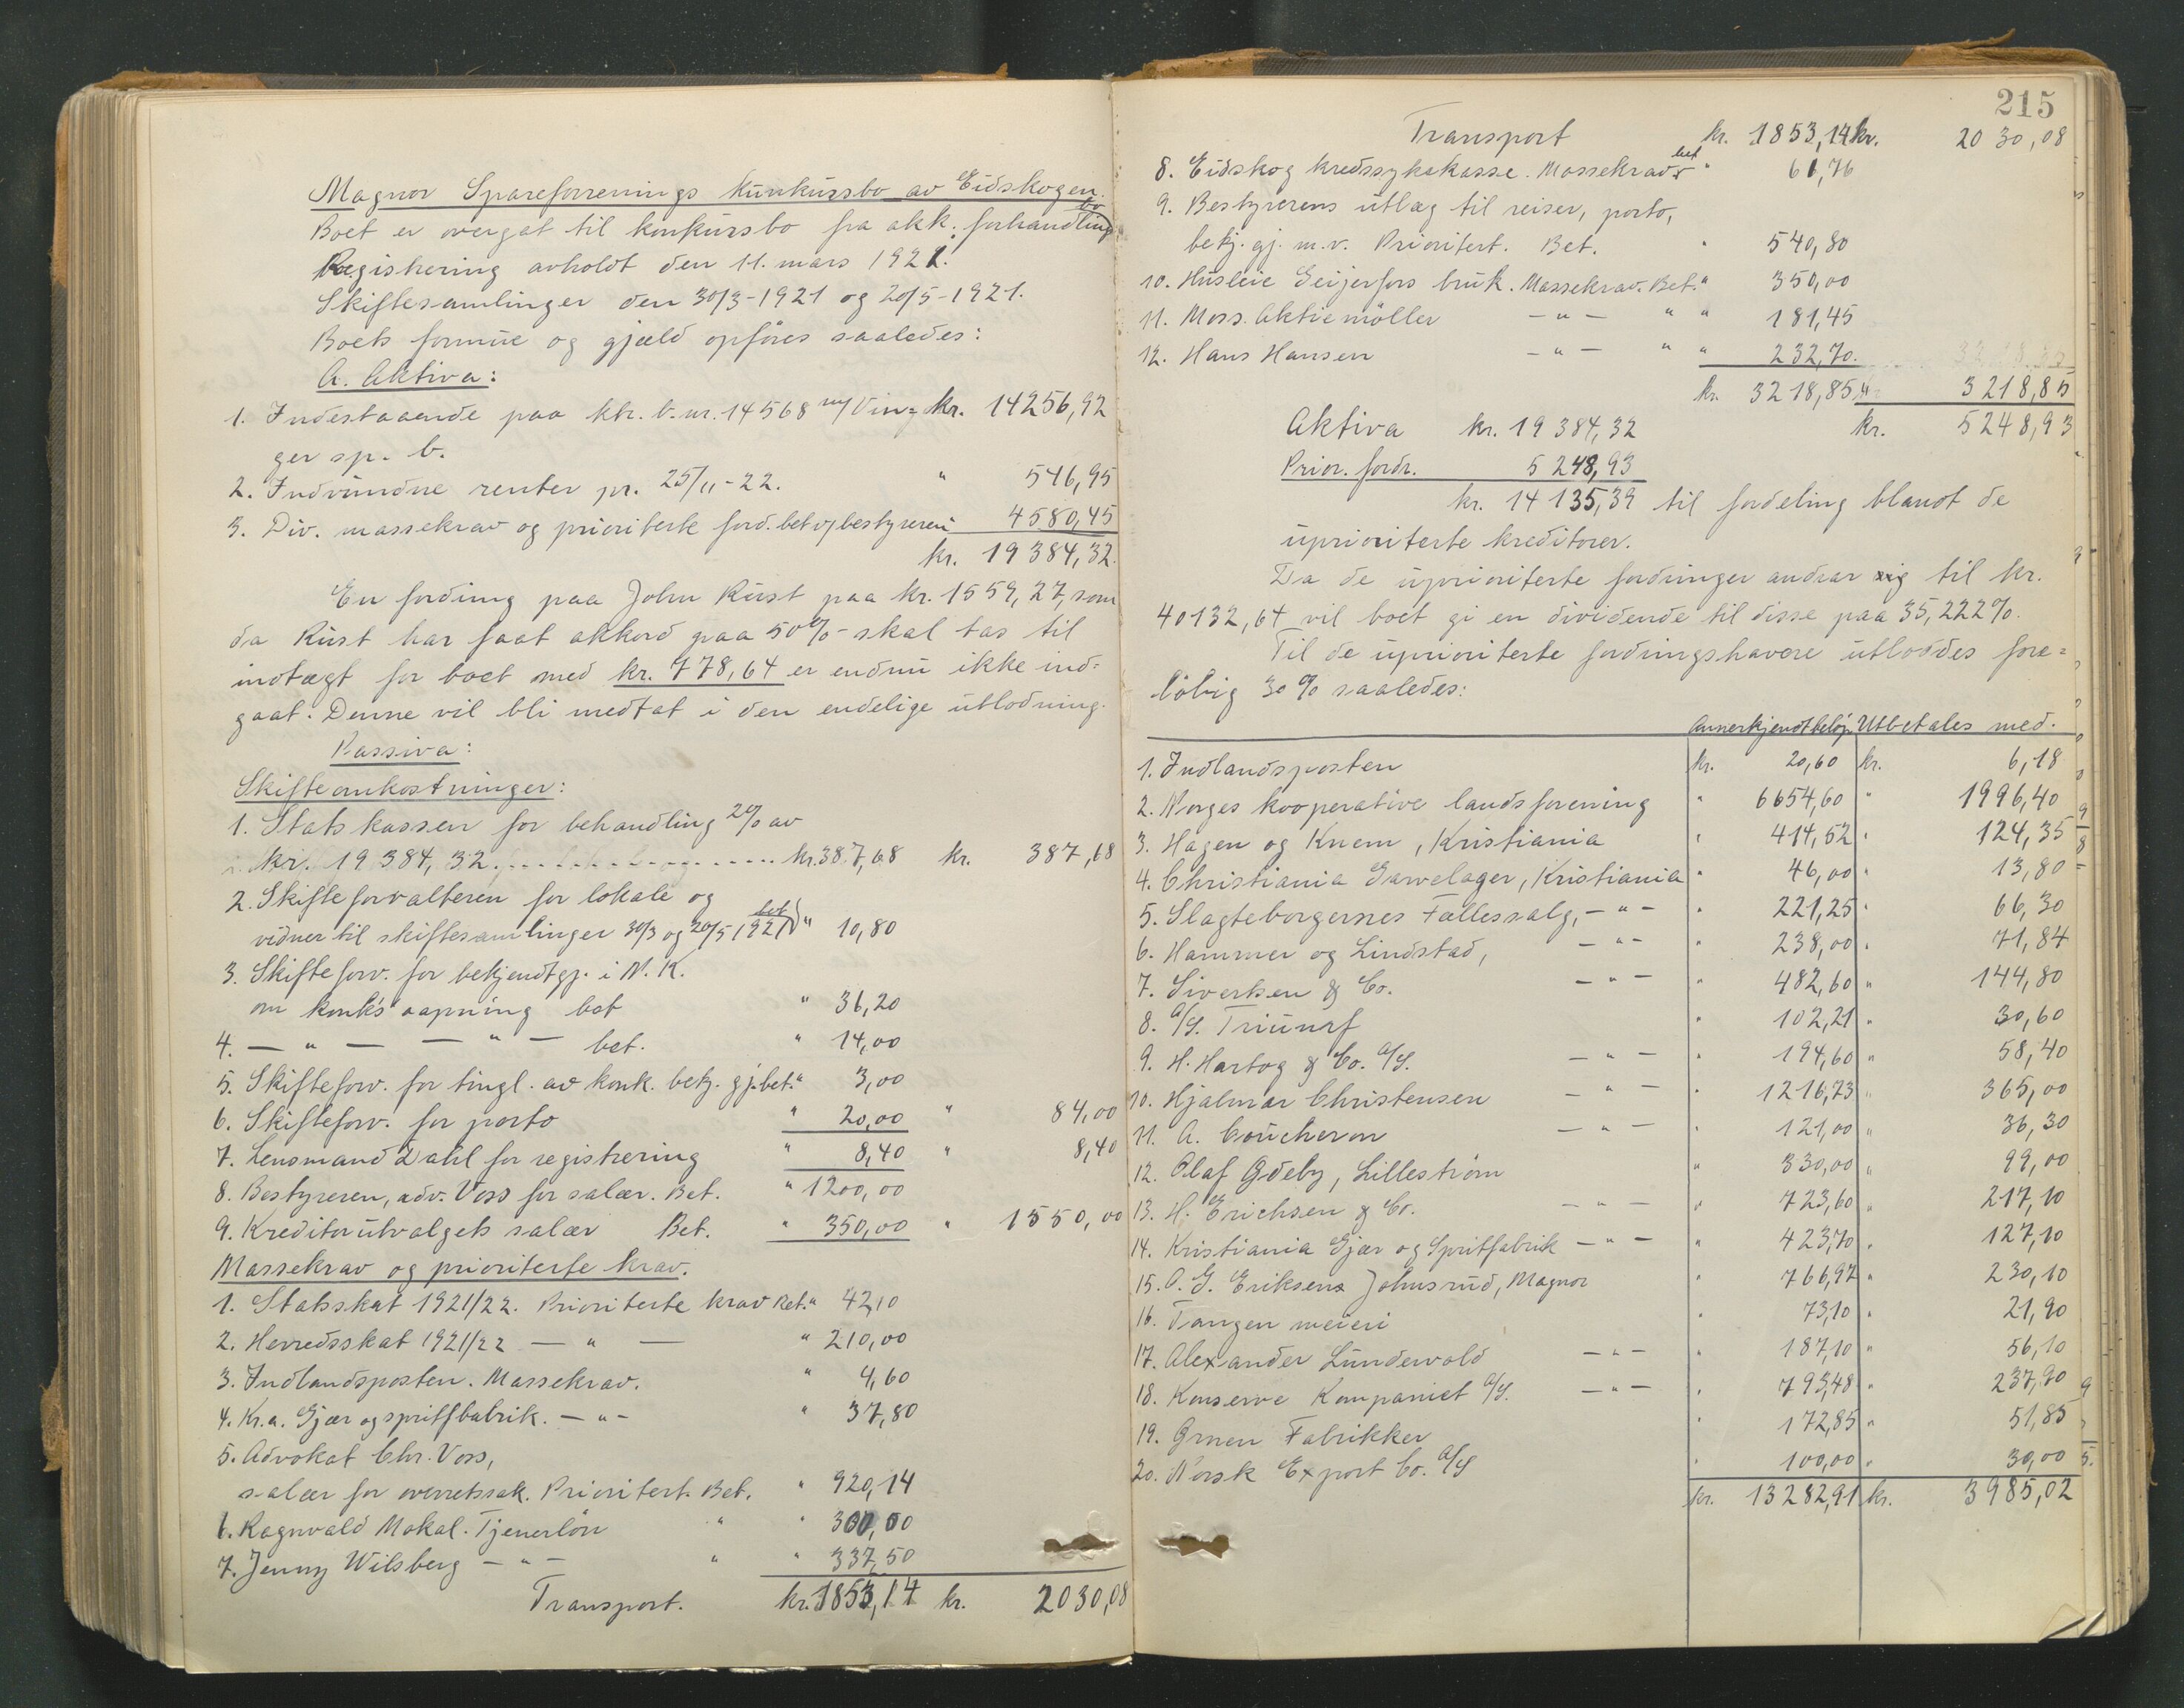 Magnor Spareforenings kunkursbo av Eidskogen.
Boet er overgåt til konkursbo fra akk. forhandling
bo
Registrering avholdt den 11. mars 1921.
Skiftesamlinger den 30/3-1921 og 20/5-1921.
Boets formue og gjæld opføres saaledes:
A. Aktiva:
1. Indestaaende paa ktr. b. nr. 14568 m/ Vin- kr. 14256,92
ger sp. b.
2. Indvundne renter pr. 25/11-22. " 546,95
3. Div. massekrav og prioriterte ford. bet v/ bestyreren 4580,45
kr. 19384,32.
En fordring paa John Rust paa kr. 1559,27, som
da Rust har faat akkord paa 50% - skal tas til
indtægt for boet med kr. 778,64 er endnu ikke ind-
gaat. Denne vil bli medtat i den endelige utlodning.
Passiva:
Skifteomkostninger:
1. Statskassen for behandling 2% av
kr. 19384,32. kr. 387,68 kr. 387,68
2. Skifteforvalteren for lokale og
vidner til skiftesamlinger 30/3 og 20/5 1921 bet " 10,80
3. Skifteforv. for bekjendtgj. i N. K.
om konk's aapning bet " 36,20
4. — " — — " — bet. " 14,00
5. Skifteforv. for tingl. av konk. bekj. gj. bet. " 3,00
6. Skifteforv. for porto " 20,00 " 84,00
7. Lensmand Dahl for registrering " 8,40 " 8,40
8. Bestyreren, adv. Voss for salær. Bet. " 1200,00
9. Kreditorutvalgets salær Bet. " 350,00 " 1550,00
Massekrav og prioriterte krav.
1. Statsskat 1921/22. Prioriterte krav Bet. " 42,10
2. Herredsskat 1921/22 — " — " 210,00
3. Indlandsposten. Massekrav. " 4,60
4. Kr.a. Gjær og spritfbabrik. — " — " 37,80
5. Advokat Chr. Voss,
salær for overretssak. Prioritert. Bet. " 920,14
6. Ragnvald Mokal. Tjenerløn " " 300,00
7. Jenny Wilsberg — " — " " 337,50
Transport. kr. 1853,14 kr. 2030,08
215
Transport kr. 1853,14 kr. 2030,08
8. Eidskog kredssykekasse. Massekrav bet " 61,76
9. Bestyrerens utlæg til reiser, porto,
bekj. gj. m.v. Prioritert. Bet. " 540,80
10. Husleie Geijerfors bruk. Massekrav. Bet. " 350,00
11. Moss. Aktiemöller — " — " " 181,45
12. Hans Hansen — " — " " 232,70.
kr. 3218,85 " 3218,85
Aktiva kr. 19384,32 kr. 5248,93
Prior. fordr. 5248,93
kr. 14135,39 til fordeling blandt de
uprioriterte kreditorer.
Da de uprioriterte fordringer andrar sig til kr.
40132,64 vil boet gi en dividende til disse paa 35,222%.
Til de uprioriterte fordringshavere utloddes fore-
løbig 30% saaledes:
Annerkjendt beløp Utbetales med.
1. Indlandsposten kr. 20,60 kr. 6,18
2. Norges kooperative landsforening " 6654,60 " 1996,40
3. Hagen og Knem, Kristiania " 414,52 " 124,35
4. Christiania Garvelager, Kristiania " 46,00 " 13,80
5. Slagteborgernes Fællessalg, — " — " 221,25 " 66,30
6. Hammer og Lindstad, — " — " 238,00 " 71,84
7. Sivertsen & Co. — " — " 482,60 " 144,80
8. A/S. Triumf " 102,21 " 30,60
9. H. Hartog & Co. A/S. — " — " 194,60 " 58,40
10. Hjalmar Christensen — " — " 1216,73 " 365,00
11. A. Coucheron — " — " 121,00 " 36,30
12. Olaf Gdeby, Lillestrøm " 330,00 " 99,00
13. H. Erichsen & Co. — " — " 723,60 " 217,10
14. Kristiania Gjær og Spritfabrik — " — " 423,70 " 127,10
15. O. G. Eriksens Johnsrud, Magnor " 766,97 " 230,10
16. Tangen meieri " 73,10 " 21,90
17. Alexander Lundevold — " — " 187,10 " 56,10
18. Konserve Kompaniet A/S. — " — " 793,48 " 237,90
19. Groen Fabrikker " 172,85 " 51,85
20. Norsk Export Co. A/S " 100,00 " 30,00
kr. 13282,91 kr. 3985,02